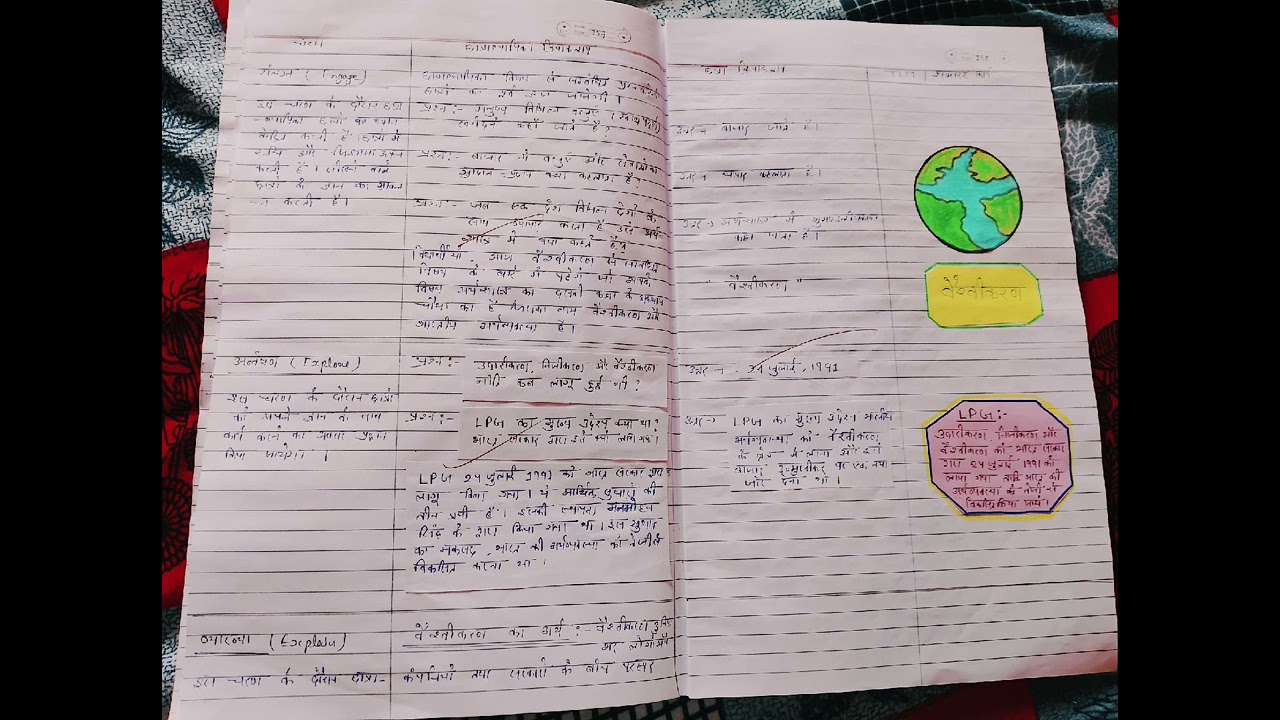 चरण
छात्राध्यापिका क्रियाकलाप
संलग्न (Engage)
इस चरण के दौरान छात्रा
-ध्यापिका छात्रों का ध्यान
केंद्रित करती हैं। छात्रों में
रुचि और जिज्ञासा उत्पन्न
करती हैं।
छात्रों के ज्ञान का आकल
-न करती हैं।
छात्राध्यापिका विषय से संबंधित प्रश्न
छात्रों का पूर्व ज्ञान जानेगी।
प्रश्न:- मनुष्य विभिन्न वस्तुएं
खरीदने कहाँ जाते हैं?
प्रश्न:- बाजार में वस्तुएं और सेवाओं का
आदान प्रदान क्या कहलाता है?
प्रश्न:- जब एक देश विभिन्न देशों के
साथ व्यापार करता है उसे अर्थ-
शास्त्र में क्या कहते हैं?
विद्यार्थियों, आज वैश्वीकरण से संबंधित
विषय के बारे में पढ़ेंगे जो आपके
विषय अर्थशास्त्र का दसवी कक्षा के अध्याय
चौथा का है जिसका नाम वैश्वीकरण और
भारतीय अर्थव्यवस्था है।
अन्वेषण (Explore)
इस चरण के दौरान छात्रों
को अपने ज्ञान के साथ
कार्य करने का अवसर प्रदान
किया जायेगा।
प्रश्न:- उदारीकरण, निजीकरण और वैश्वीकरण
नीति कब लागू हुई थी?
प्रश्न:- LPG का मुख्य उद्देश्य क्या था?
भारत सरकार द्वारा इसे क्यों लाया गया।
LPG 24 जुलाई 1991 को भारत सरकार द्वारा
लागू किया गया। ये आर्थिक सुधारों की
तीन प्रमुख हैं। इसकी स्थापना मनमोहन
सिंह के द्वारा किया गया था। इस सुधार
का मकसद भारत की अर्थव्यवस्था को तेजी से
विकसित करना था।
व्याख्या (Explain)
इस चरण के दौरान छात्रा-
वैश्वीकरण का अर्थ:- वैश्वीकरण दुनिया
भर लोगों
कंपनियों तथा सरकारों के बीच परस्पर
छात्र क्रियाकलाप
उत्तर → बाजार जाते हैं।
उत्तर → व्यापार कहलाता है।
उत्तर → अर्थशास्त्र में
कहा जाता है।
"वैश्वीकरण"
उत्तर → 24 जुलाई, 1991
उत्तर → LPG का मुख्य उद्देश्य भारतीय
अर्थव्यवस्था को वैश्वीकरण
के क्षेत्र में लाना और इसे
बाजार उन्मुखीकरण पर एक नया
जोर देना था।
वैश्वीकरण
LPG:-
उदारीकरण, निजीकरण और
वैश्वीकरण को भारत सरकार
द्वारा 24 जुलाई 1991 को
लाया गया ताकि भारत की
अर्थव्यवस्था को तेजी से
विकसित किया जाये।